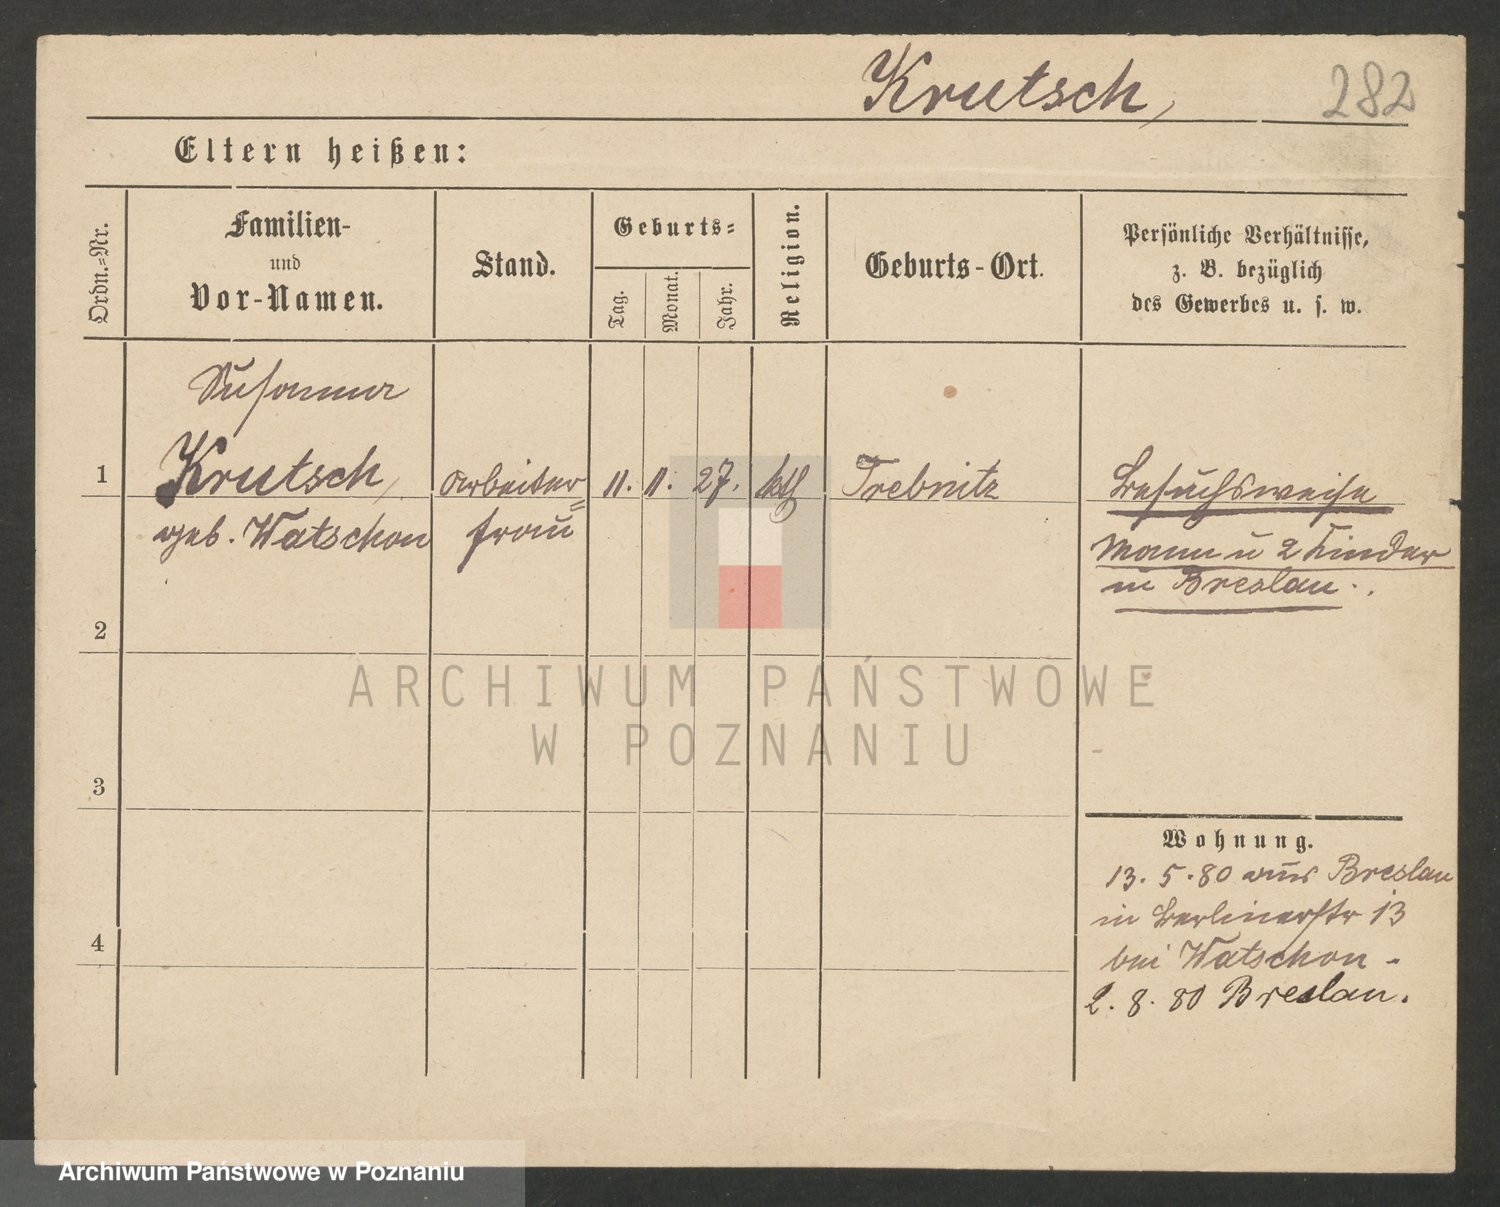 Krutsch,
282
Eltern heißen:
Ordn.=Nr.
Familien-
und
Vor-Namen.
Stand.
Geburts=
Tag.
Monat.
Jahr.
Religion.
Geburts-Ort.
Persönliche Verhältnisse,
z. B. bezüglich
des Gewerbes u. s. w.
Susanna
1
Krutsch,
geb. Watschon
Arbeiter=
frau
11. 11. 27. kth
Trebnitz
Besuchsweise
Mann u 2 Kinder
in Breslau.
2
3
4
Wohnung.
13. 5. 80 aus Breslau
in Berlinerstr 13
bei Watschon -
2. 8. 80 Breslau.
ARCHIWUM PAŃSTWOWE
W POZNANIU
Archiwum Państwowe w Poznaniu